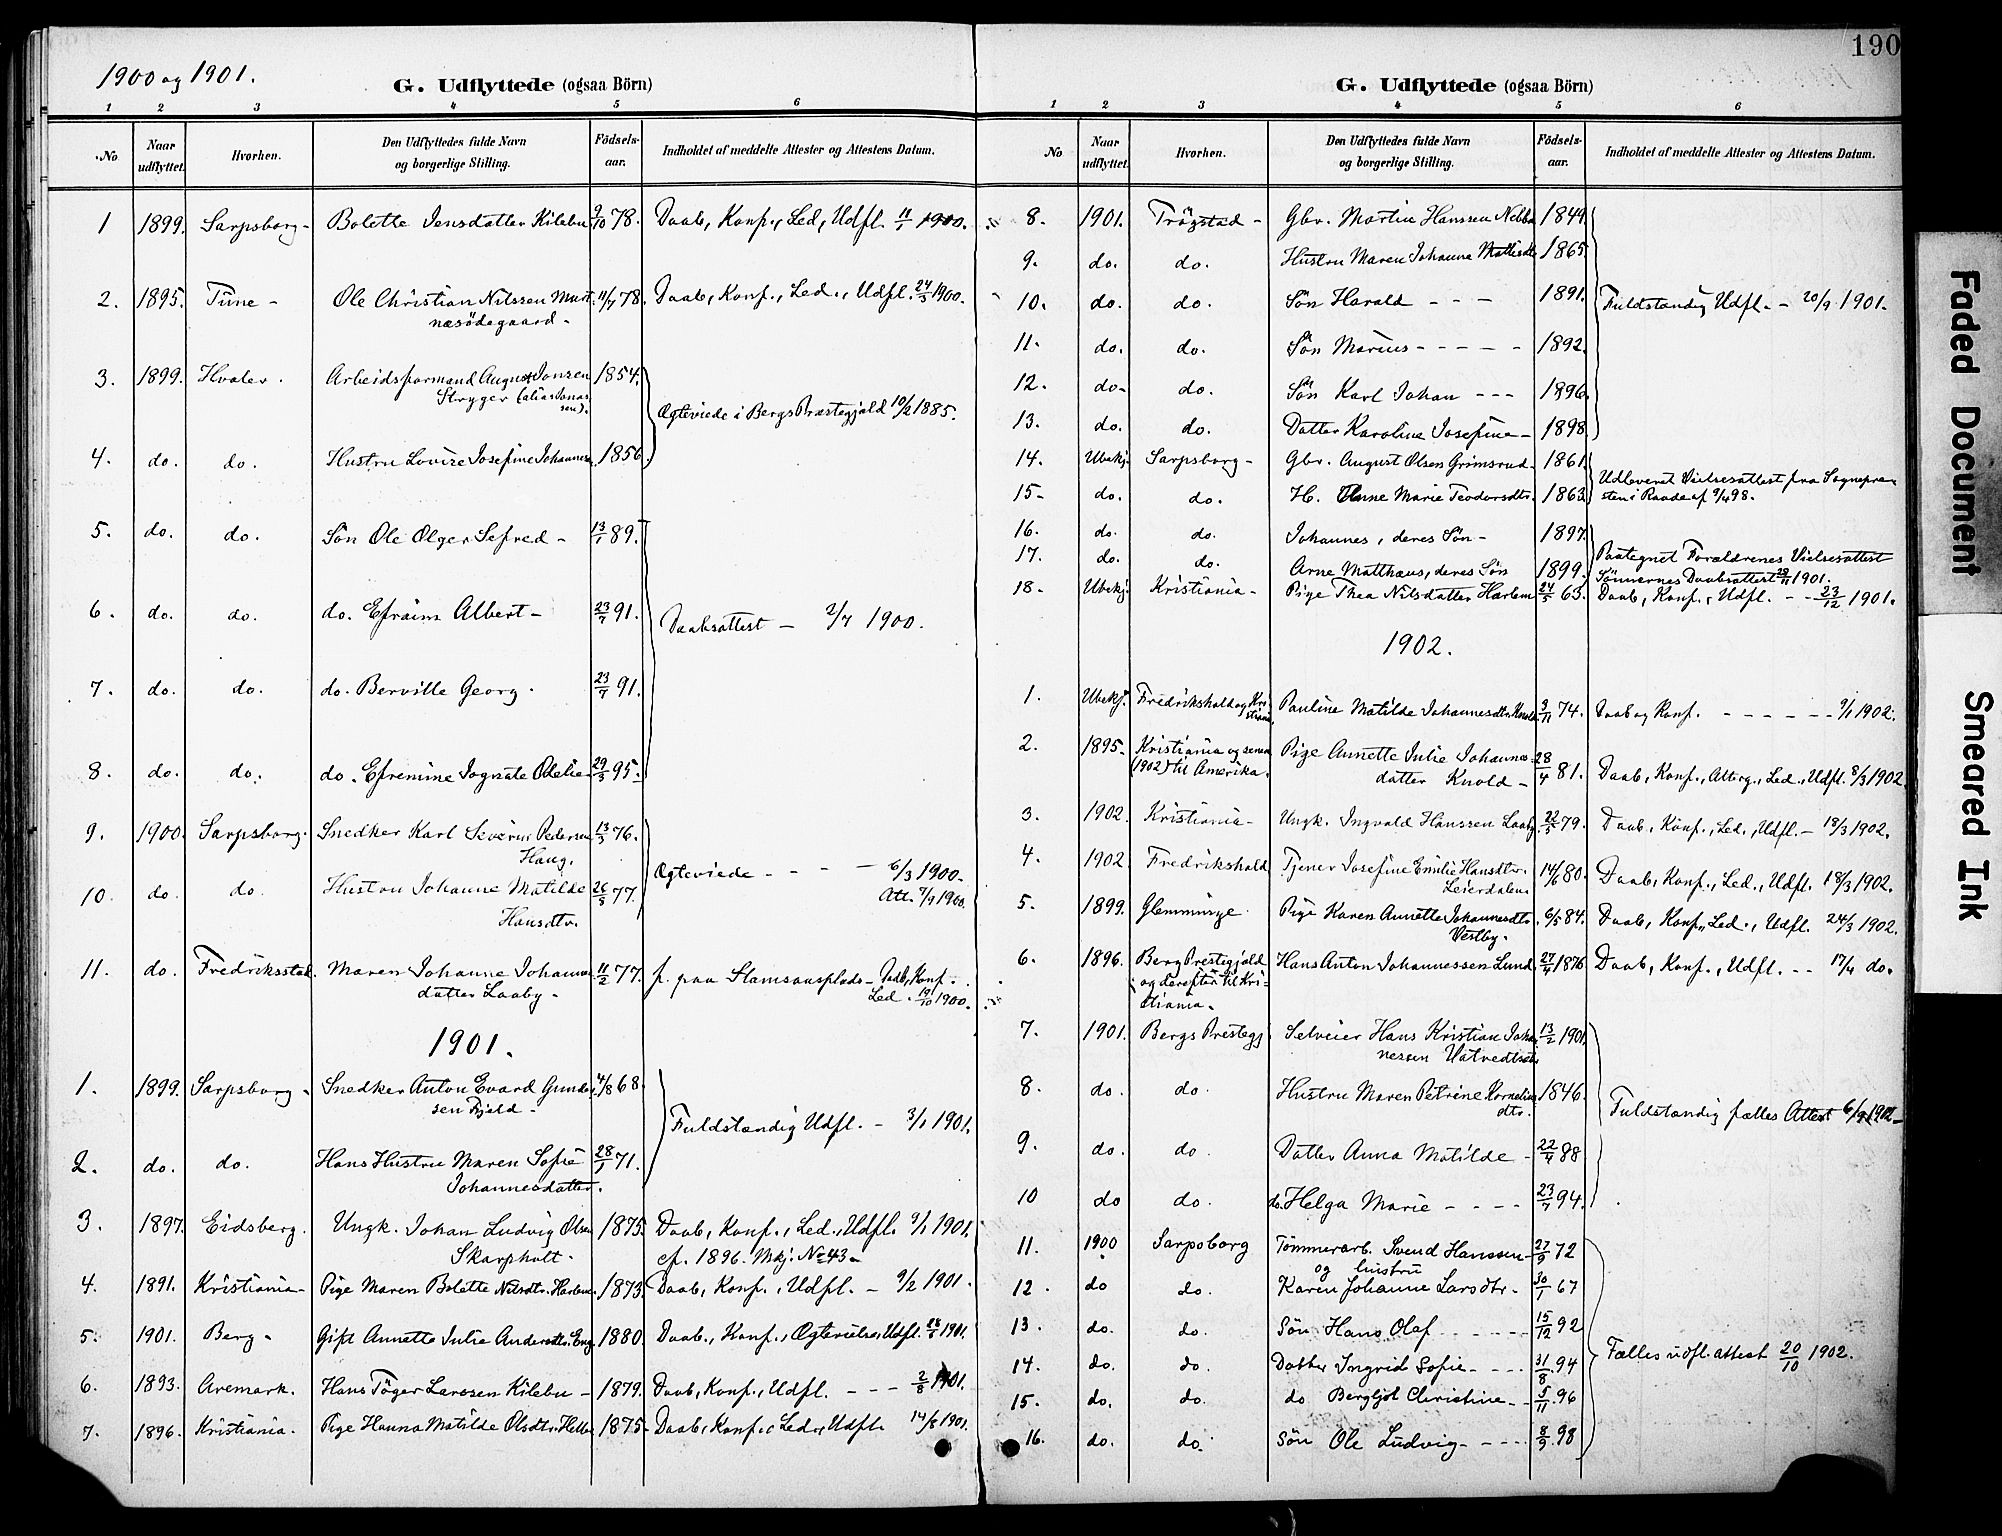 190
1900 og 1901.
G. Udflyttede (ogsaa Börn)
1 2 3 4 5 6
No Naar udflyttet. Hvorhen. Den Udflyttedes fulde Navn og borgerlige Stilling. Födsels-aar. Indholdet af meddelte Attester og Attestens Datum.
1 1899. Sarpsborg- Bolette Jensdatter Kilebu 9/10 78. Daab, Konf., Led, Udfl. 11/1 1900.
2. 1895. Tune - Ole Christian Nilssen Mort 11/7 78. Daab, Konf., Led., Udfl. 24/5 1900.
næsödegaard -
3. 1899. Hvaler. Arbeidsformand August Jonsen 1854.
Stryger (alias Jonas
sen).
Ægteviede i Bergs Præstegjeld 10/2 1885.
4. do. do. Hustru Lovise Josefine Johannes 1856
5. do. do. Sön Ole Olger Sefred - 13/1 89.
6. do. do. do. Efraim Albert - 23/7 91.
Daabsattest - 2/7 1900.
7. do. do. do. Berville Georg. 23/7 91.
8. do. do. do. Efremine Jognate Odelie- 29/3 95.
9. 1900. Sarpsborg. Snedker Karl Severin Pedersen 13/5 76.
Haug.
Ægteviede - - - - 6/3 1900.
10. do. do. Hustru Johanne Matilde 26/5 77.
Att. 7/9 1900.
Hansdtr.
11. do. Fredriksstad. Maren Johanne Johannes 11/2 77. f. paa Slamsausplads- Daab, Konf.
datter Laaby. Led. 19/10 1900.
1901.
1. 1899. Sarpsborg- Snedker Anton Evard Gunder 4/8 68.
sen Fjeld -
Fuldstændig Udfl. - 3/1 1901.
2. do. do. Hans Hustru Maren Sofie 28/1 71.
Johannesdatter.
3. 1897. Eidsberg. Ungk. Johan Ludvig Olsen 1875. Daab, Konf., Led., Udfl. 9/1 1901.
Skarpholt. cf. 1896. Mkj. No 43-
4. 1891. Kristiania- Pige Maren Bolette Nilsdtr. Harlem 1873. Daab, Konf., Udfl. - 9/2 1901.
5. 1901. Berg - Gift Annette Julie Andersdtr. Eng. 1880 Daab, Konf., Ægtevielse, Udfl. 1901.
6. 1893. Aremark. Hans Töger Larssen Kilebu - 1879. Daab, Konf., Udfl. - - - 2/8 1901.
7. 1896. Kristiania. Pige Hanna Matilde Olsdtr. 1875. Daab, Konf., Led., Udfl. 14/8 1901.
G. Udflyttede (ogsaa Börn)
1 2 3 4 5 6
No Naar udflyttet Hvorhen. Den Udflyttedes fulde Navn og borgerlige Stilling. Födsels-aar. Indholdet af meddelte Attester og Attestens Datum.
8. 1901. Trögstad - Gbr. Martin Hanssen Nebba 1849.
9. do. do. Hustru Maren Johanne 1865.
10. do. do. Sön Harald - - - 1891. Fuldstændig Udfl. - 20/9 1901.
11. do. do. Sön Marius - - - - - 1892.
12. do. do. Sön Karl Johan - - - 1896.
13. do. do. Datter Karoline Josefine - 1898.
14. Ubekj. Sarpsborg - Gbr. August Olsen Grimsrud- 1861.
15- do. do. H. Anne Marie Teodorsdtr. 1863
Udleveret Vielsesattest fra Sognepre-
sten i Raade af 9/4 98.
16. do. do. Johannes, deres Sön- 1897.
17. do. do. Arne Matthæus, deres Sön 1899.
Paategnet Forældrenes Vielsesattest
Sönnernes Daabsattest 1901.
18. Ubekj. Kristiania - Pige Thea Nilsdatter Harlem 24/5 63. Daab, Konf., Udfl. - - 23/12 1901.
1902.
1. Ubekj. Fredrikshald og Kri Pauline Matilde Johannesdtr. Knold 3/11 74. Daab og Konf. - - - - - - 9/1 1902.
stiania
2. 1895. Kristiania og senere Pige Annette Julie Johannes- 28/4 81. Daab, Konf., Led., Udfl. 8/3 1902
(1902) til Amerika. datter Knold -
3. 1902. Kristiania- Ungk. Ingvald Hanssen Laaby. 22/5 79. Daab, Konf., Led., Udfl. - 18/3 1902.
4. 1902 Fredrikshald Tjener Josefine Emilie Hansdtr. 14/6 80. Daab, Konf., Led., Udfl. 18/3 1902.
Leierdalen
5. 1899. Glemminge. Pige Karen Annette Johannesdtr. 6/5 84. Daab, Konf., Led., Udfl. 24/3 1902.
Vestby.
6. 1896. Berg Prestegjeld Hans Anton Johannessen Lund 27/4 1876 Daab, Konf., Udfl. - - 17/4 do.
og derefter til Kri-
stiania.
7. 1901. Bergs Prestegj Selveier Hans Kristian Johan 13/2 1901.
nessen
8. do. do. Hustru Maren Petrine Kornelius 1846.
dtr.
Fuldstændig fælles Attest 6/9 1902-
9. do. do. Datter Anna Matilde - 22/4 88
10 do do. do. Helga Marie - - - - 23/7 94.
11. 1900 Sarpsborg Tömmerarb. Svend Hanssen - 27/9 72
og hustru
12. do do. Karen Johanne Larsdtr. - 30/1 67
13. do. do. Sön Hans Olaf - - - - - 15/12 92
Fælles udfl. attest 20/10 1902.
14. do. do. Datter Ingrid Sofie - - - 31/8 94
15. do. do. do Bergljot Christine - - 5/11 96
16. do. do. Sön Ole Ludvig - - - - 8/9 98
Faded Document
Smeared Ink